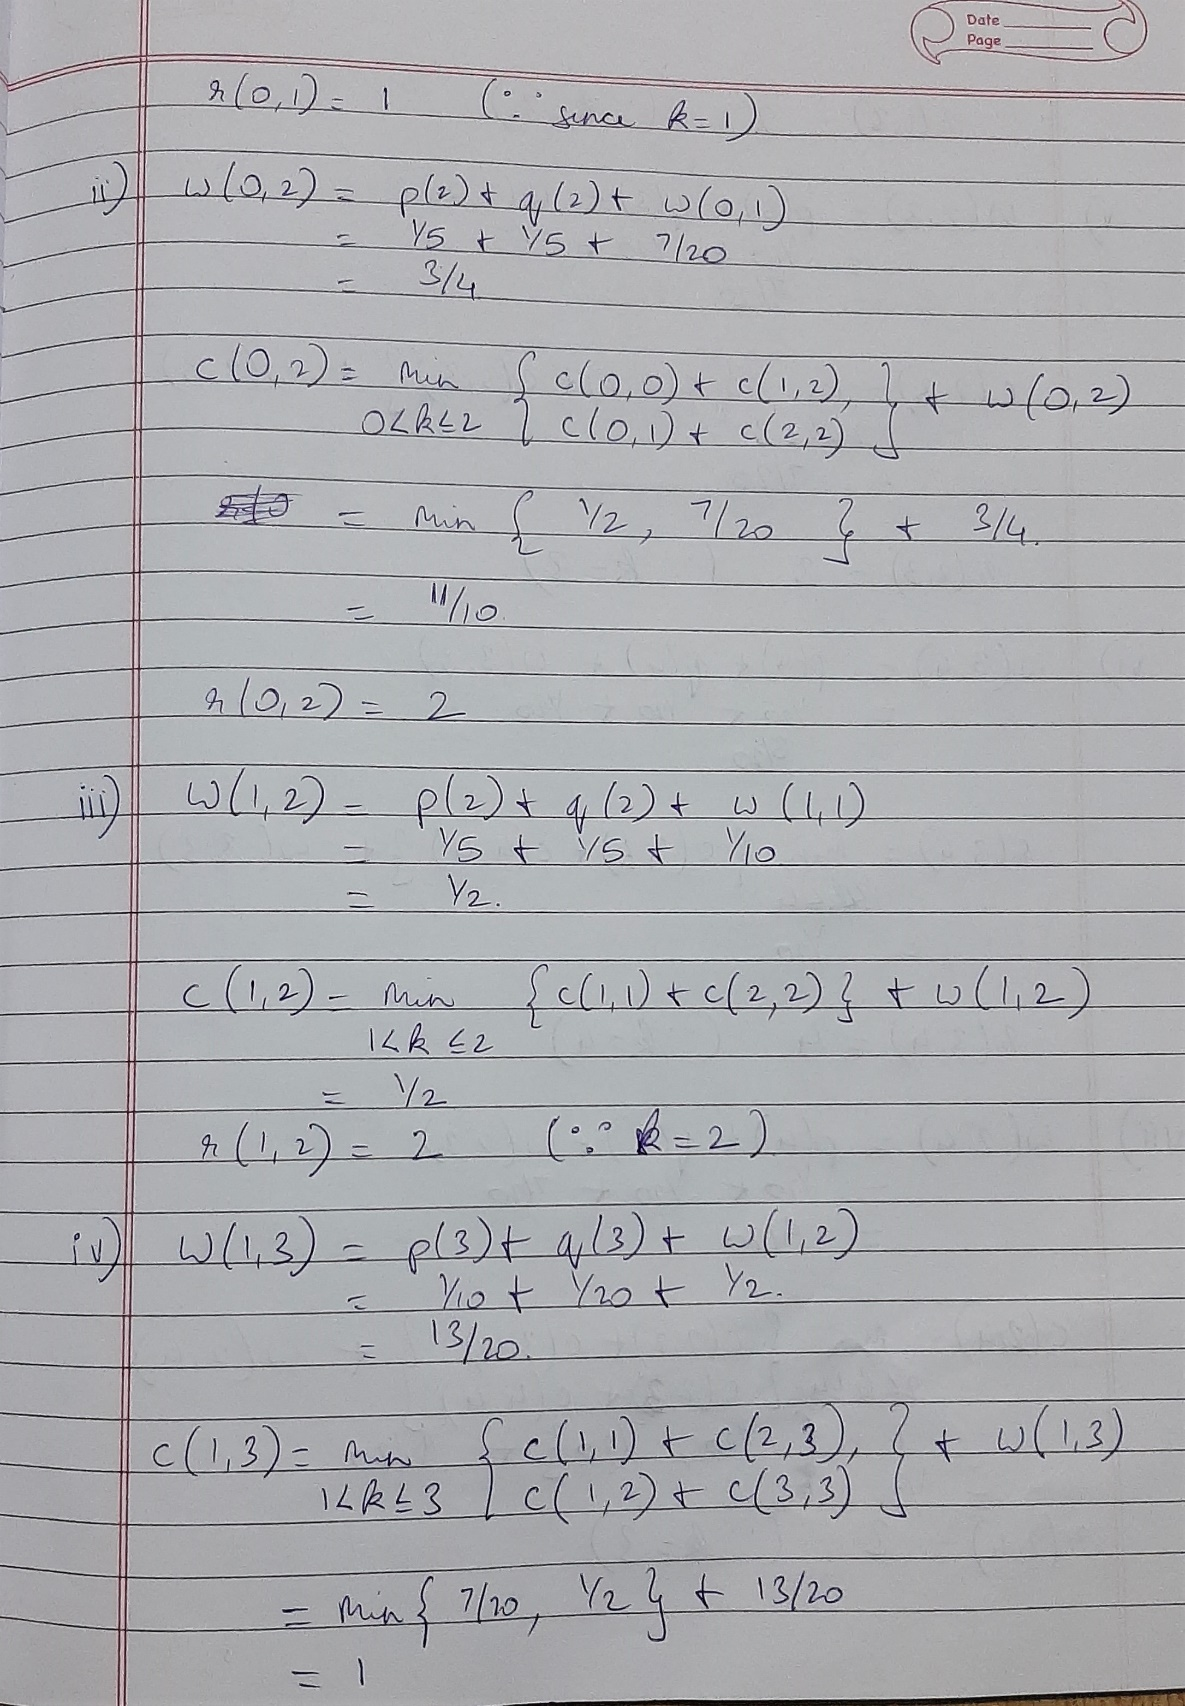 Date
Page
r(0,1) = 1 (∵ since k=1)
ii) w(0,2) = p(2) + q(2) + w(0,1)
= 1/5 + 1/5 + 7/20
= 3/4
c(0,2) = min { c(0,0) + c(1,2), } + w(0,2)
0<k≤2 { c(0,1) + c(2,2) }
= min { 1/2, 7/20 } + 3/4.
= 11/10.
r(0,2) = 2
iii) w(1,2) = p(2) + q(2) + w(1,1)
= 1/5 + 1/5 + 1/10
= 1/2.
c(1,2) = min { c(1,1) + c(2,2) } + w(1,2)
1<k≤2
= 1/2
r(1,2) = 2 (∵ k=2)
iv) w(1,3) = p(3) + q(3) + w(1,2)
= 1/10 + 1/20 + 1/2.
= 13/20.
c(1,3) = min { c(1,1) + c(2,3), } + w(1,3)
1<k≤3 { c(1,2) + c(3,3) }
= min { 7/20, 1/2 } + 13/20
= 1